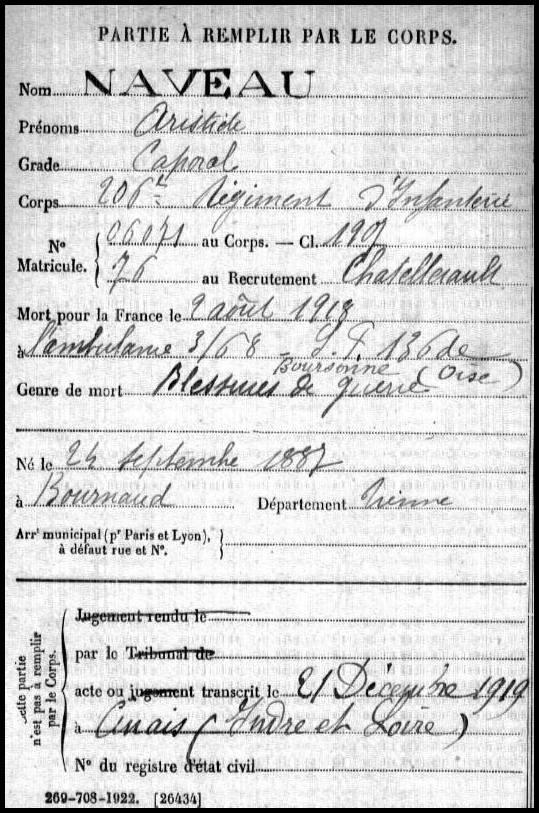 PARTIE À REMPLIR PAR LE CORPS.
Nom NAVEAU
Prénoms Aristide
Grade Caporal
Corps 206e Régiment d'Infanterie
N° Matricule. { 06071 au Corps. — Cl. 1907
76 au Recrutement Chatellerault
Mort pour la France le 2 août 1918
à l'ambulance 3/68 S.P. 136 de
Boursonne (Oise)
Genre de mort Blessures de guerre
Né le 24 septembre 1887
à Bournand Département Vienne
Arrt municipal (pr Paris et Lyon),
à défaut rue et N°.
Cette partie
n'est pas à remplir
par le Corps.
Jugement rendu le
par le Tribunal de
acte ou jugement transcrit le 21 Décembre 1919
à Cinais (Indre et Loire)
N° du registre d'état civil
269-708-1922. [26434]